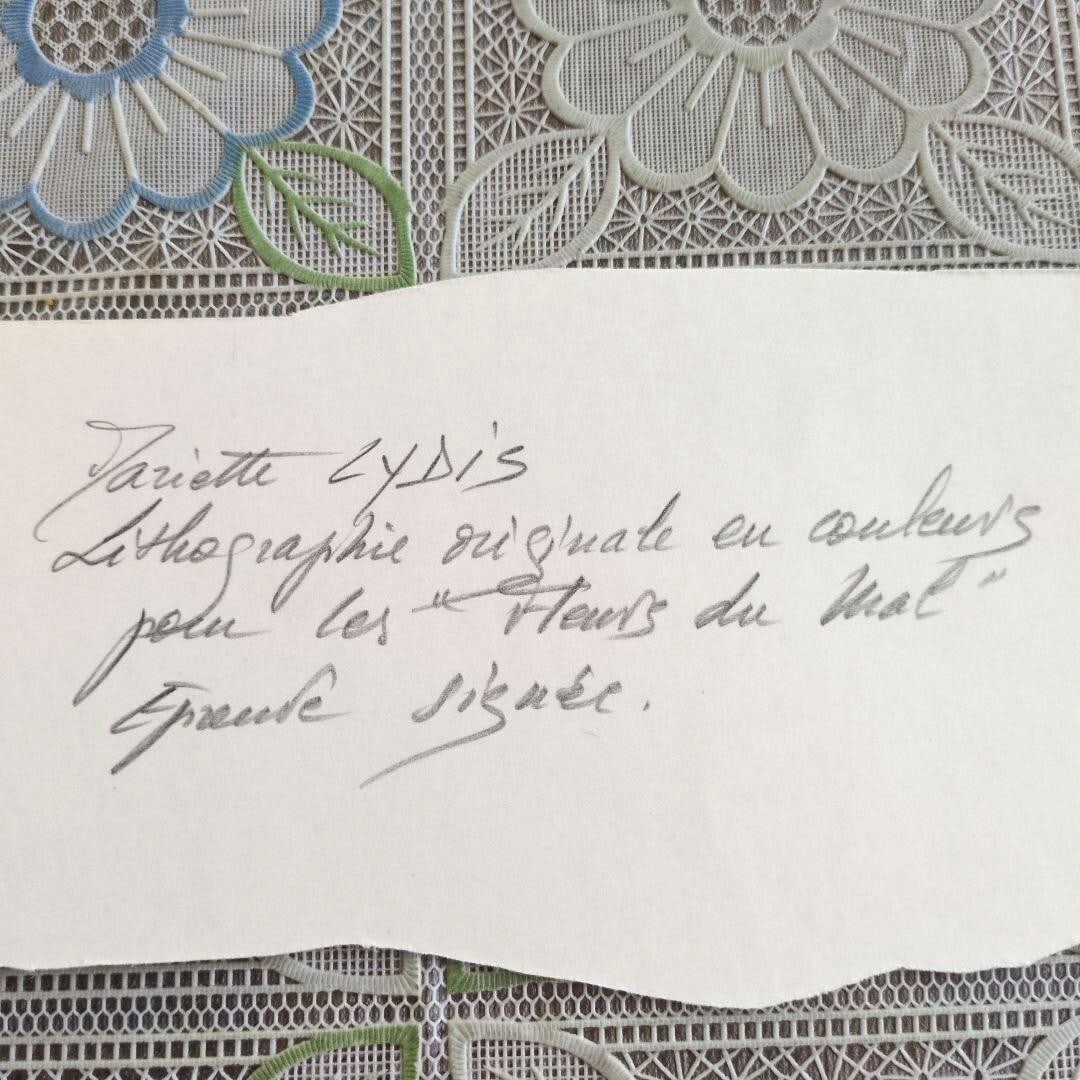 Mariette LYDIS
Lithographie originale en couleurs
pour les "Fleurs du Mal"
Epreuve signée.